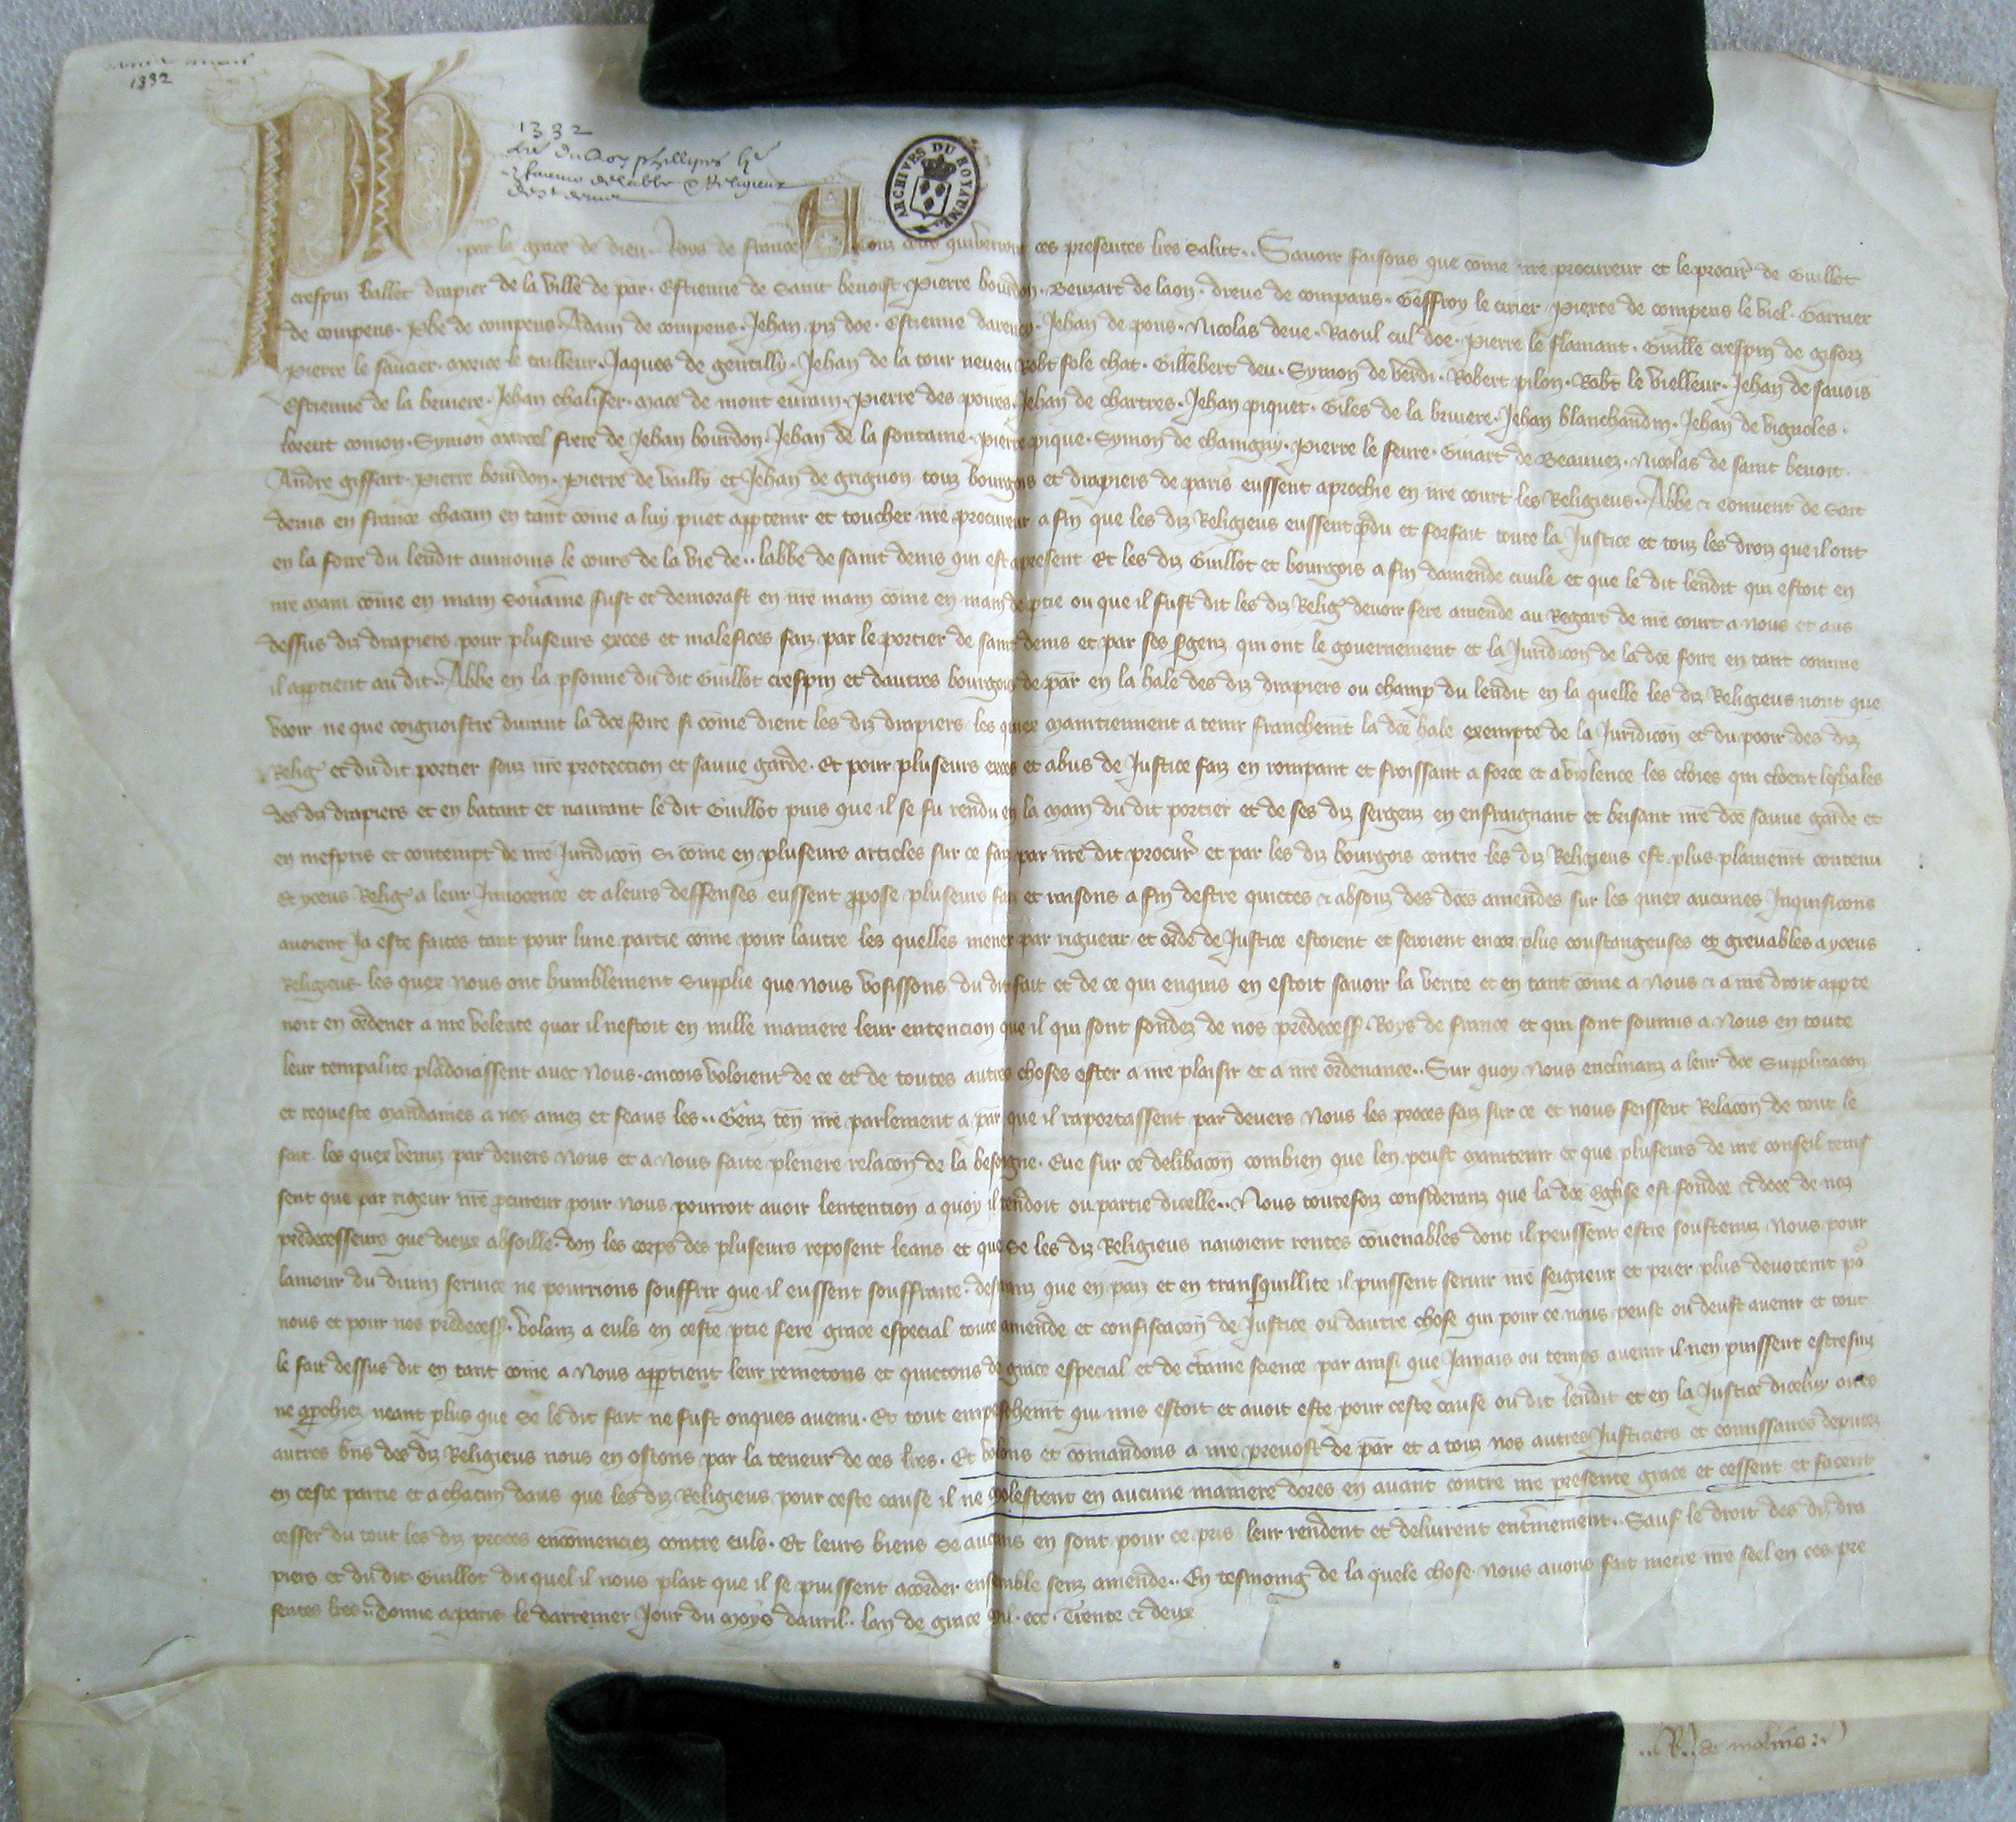 1332
1332
Lre du Roy phillipes
en faueur de labbe & Religieux
de st denis
ARCHIVES DU ROYAUME
Ph par la grace de dieu Roys de france A touz ceus qui verront ces presentes lres Salut. Sauoir faisons que come nre procureur et le procur de Guillot
crespin vallet drapier de la ville de par. Estienne de Saint benoist. Pierre bourdon. Beuzart de laon. dreue de compans. Geffroy le cirier. Pierre de compens le viel. Garnier
de compens. Phe de compens. Adam de compens. Jehan piz doe. Estienne Jehan de pons. Nicolas deue. Raoul cul doe. Pierre le flamant. Guille crespin de gisorz
pierre le saucier. le tailleur. Jaques de gentilly. Jehan de la tour neueu Robt fole chat. Gillebert deu. Symon de Robert pilon. Robt le vielleur. Jehan de sauois
Estienne de la bruiere. Jehan chalifer. Mace de mont Pierre des poires. Jehan de chartres. Jehan piquet. Giles de la bruiere. Jehan blanchandin. Jehan de vignoles.
lorent comon. Symon marcel frere de Jehan bourdon. Jehan de la fontaine. pierre pique. Symon de champigny. Pierre le feure. Guiart de Beauuez. Nicolas de saint benoit.
Andre giffart. Pierre bourdon. Pierre de veilly et Jehan de grignon touz bourgois et drapiers de paris eussent aprochie en nre court les Religieus.. Abbe & conuent de Sait
denis en france chacun en tant come a luy puet apptenir et toucher nre procureur a fin que les diz Religieus eussent pdu et forfait toute la Justice et touz les droiz que il ont
en la foire du lendit aumoins le cours de la vie de.. labbe de saint denis qui est apresent Et les diz Guillot et bourgois a fin damende ciuile et que le dit lendit qui estoit en
nre main come en main souuaine fust et demorast en nre main come en main de ptie ou que il fust dit les diz Relig deuoir fere amende au Regart de nre court a nous et aus
dessus diz drapiers pour pluseurs exces et malefices faiz par le portier de saint denis et par ses sgenz qui ont le gouuernement et la Juridicon de la dce foire en tant comme
il apptient au dit.. Abbe en la psonne du dit Guillot crespin et dautres bourgois de par en la hale des diz drapiers ou champ du lendit en la quelle les diz Religieus nont que
veoir ne que coignoistre durant la dce foire si come dient les diz drapiers les quiex maintiennent a tenir franchemt la dce hale exempte de la Juridicon et du pooir des diz
Relig et du dit portier souz nre protection et sauue garde. Et pour pluseurs exces et abus de Justice faiz en rompant et froissant a force et a violence les cloies qui cloent les hales
des diz drapiers et en batant et naurant le dit Guillot puis que il se fu rendu en la main du dit portier et de ses diz sergenz en enfraignant et brisant nre dce sauue garde et
en mespris et contempt de nre Juridicon si come en pluseurs articles sur ce faiz par nre dit procur et par les diz bourgois contre les diz Religieus est plus plainemt contenu
Et yceus Relig a leur Innocence et a leurs deffenses eussent ppose pluseurs faiz et raisons a fin destre quictes & absouz des dces amendes sur les quiex aucunes Inquisicons
auoient Ja este faites tant pour lune partie come pour lautre les quelles mener par rigueur et ordre de Justice estoient et seroient encor plus coustangeuses et greuables a yceus
Religieus. les quex nous ont humblement Supplie que nous vosissons du dit fait et de ce qui enquis en estoit sauoir la verite et en tant come a nous & a nre droit appte
noit en ordener a nre volente quar il nestoit en nulle maniere leur entencion que il qui sont fondez de nos predecess Roys de france et qui sont soumis a nous en toute
leur tempalite plaidoiassent auec nous. ancois voloient de ce et de toutes autres choses ester a nre plaisir et a nre ordenance.. Sur quoy nous enclinanz a leur dce Supplicacon
et requeste mandames a nos amez et feaus les.. Genz ten nre parlement a par que il raportassent par deuers nous les proces faiz sur ce et nous feissent Relacon de tout le
fait. les quex venuz par deuers nous et a nous faite pleniere relacon de la besoigne. Eue sur ce delibacon combien que len peust maintenir et que pluseurs de nre conseil tenis
sent que par rigeur nre pcureur pour nous pourroit auoir lentention a quoy il tendoit ou partie dicelle.. Nous toutefoiz consideranz que la dce Eglise est fondee & doee de noz
predecesseurs que dieux absoille. don les corps des pluseurs reposent leans et que se les diz Religieus nauoient rentes couenables dont il peussent estre soustenuz nous pour
lamour du diuin seruice ne pourrions souffrir que il eussent souffraite. desiranz que en paiz et en transquillite il puissent seruir nre seigneur et prier plus deuotemt po
nous et pour nos predecess. volanz a euls en ceste ptie fere grace especial toute amende et confiscacon de Justice ou dautre chose qui pour ce nous peust ou deust auenir et tout
le fait dessus dit en tant come a nous apptient leur remetons et quictons de grace especial et de ctaine science par ainsi que Jamais ou temps auenir il nen puissent estre suiz
ne approchiez neant plus que se le dit fait ne fust onques auenu. Et tout empeschemt qui mis estoit et auoit este pour ceste cause ou dit lendit et en la Justice diceluy ou es
autres bns des diz Religieus nous en ostons par la teneur de ces lres. Et volons et comandons a nre preuost de par et a touz nos autres Justiciers et comissaires deputez
en ceste partie et a chacun daus que les diz Religieus pour ceste cause il ne molestent en aucune maniere dores en auant contre nre presente grace et cessent et facent
cesser du tout les diz proces encomenciez contre euls. Et leurs biens se aucuns en sont pour ce pris leur rendent et deliurent entinement.. Sauf le droit des diz dra
piers et du dit Guillot du quel il nous plait que il se puissent acorder ensemble senz amende.. En tesmoing de la quele chose nous auons fait metre nre seel en ces pre
sentes lres.. donne a paris le darrenier Jour du moys dauril.. lan de grace mil. ccc. Trente & deux
..R.. de molins